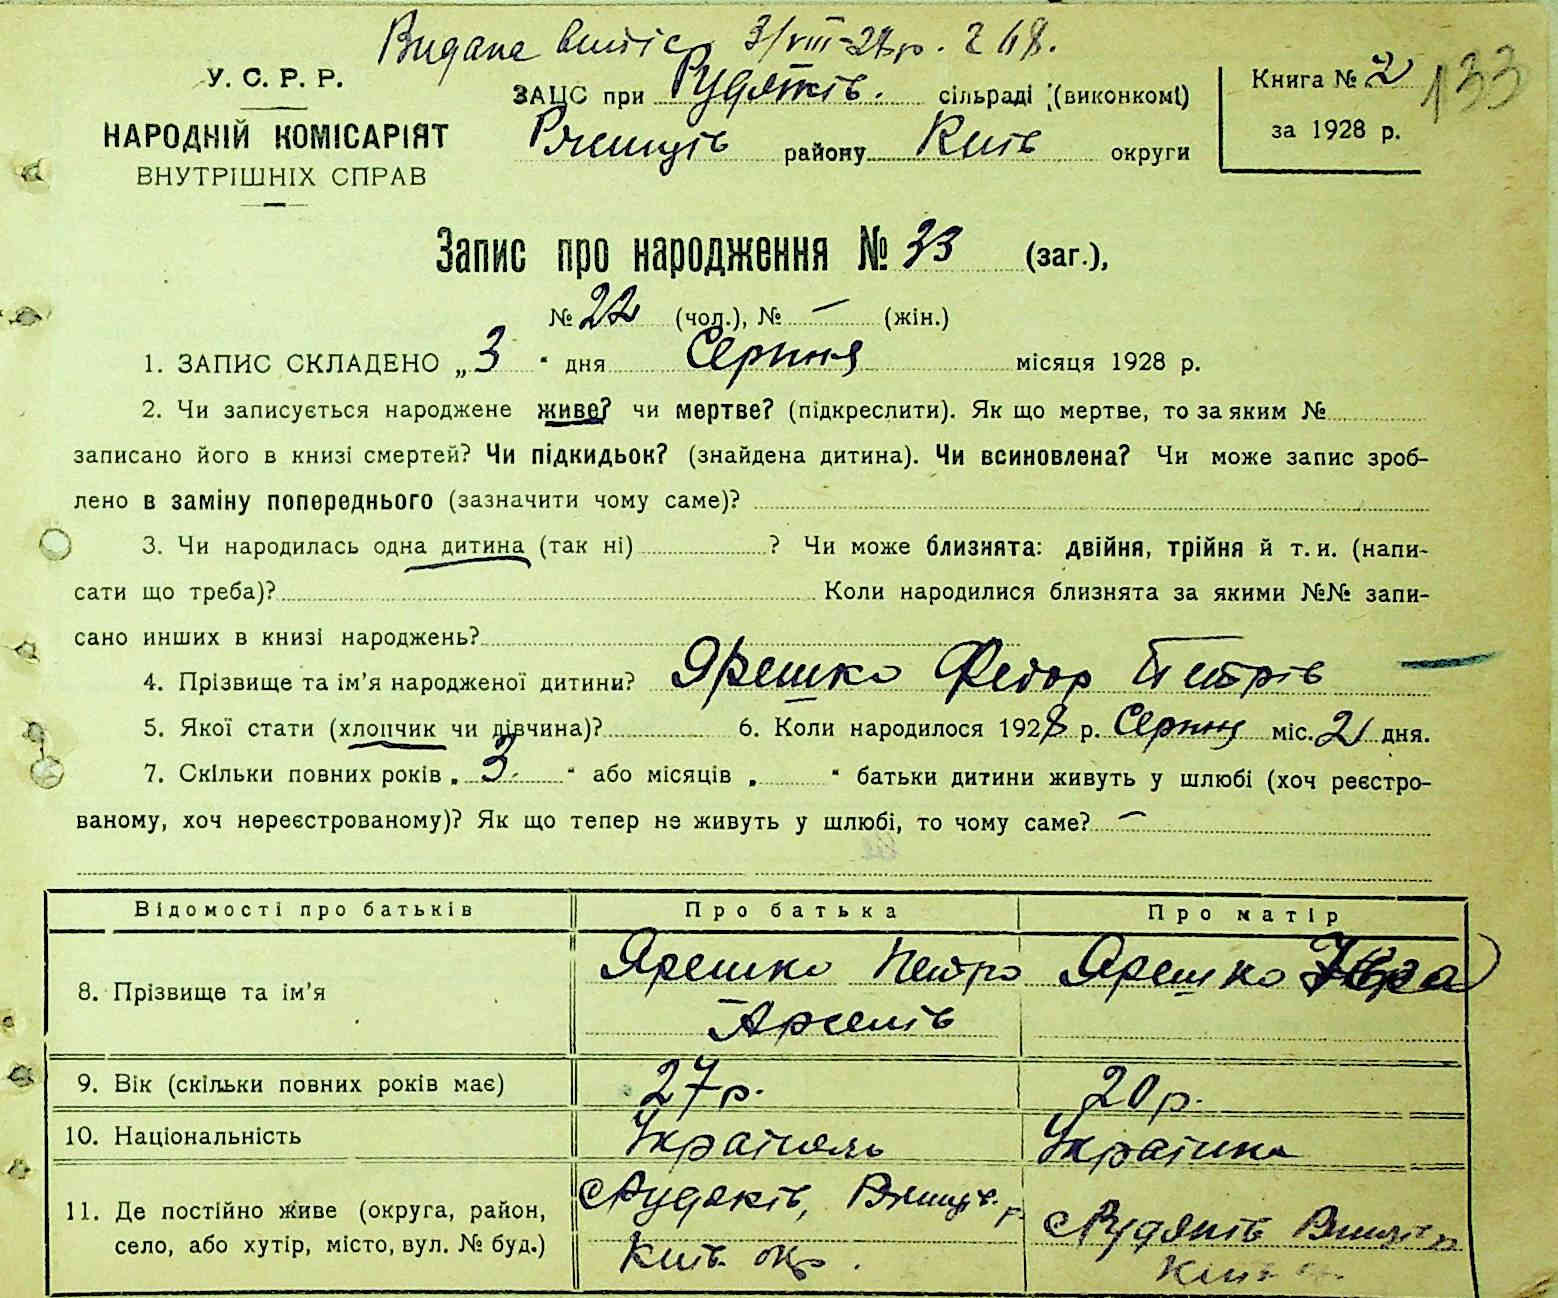 Видане витяс 3/VIII-28р. 2 48.
У. С. Р. Р.
НАРОДНІЙ КОМІСАРІЯТ
ВНУТРІШНІХ СПРАВ
ЗАЦС при Рудяків. сільраді (виконкомі)
району Київ округи
Книга № 2
за 1928 р.
133
Запис про народження № 33 (заг.),
№ 22 (чол.), № – (жін.)
1. ЗАПИС СКЛАДЕНО „3" дня Серпня місяця 1928 р.
2. Чи записується народжене живе? чи мертве? (підкреслити). Як що мертве, то за яким №
записано його в книзі смертей? Чи підкидьок? (знайдена дитина). Чи всиновлена? Чи може запис зроб-
лено в заміну попереднього (зазначити чому саме)?
3. Чи народилась одна дитина (так ні) ? Чи може близнята: двійня, трійня й т. и. (напи-
сати що треба)? Коли народилися близнята за якими №№ запи-
сано инших в книзі народжень?
4. Прізвище та ім'я народженої дитини? Ярешко Федор Петрів
5. Якої стати (хлопчик чи дівчина)? 6. Коли народилося 1928 р. Серпня міс. 2 дня.
7. Скільки повних років „3." або місяців „ " батьки дитини живуть у шлюбі (хоч реєстро-
ваному, хоч нереєстрованому)? Як що тепер не живуть у шлюбі, то чому саме? –
Відомості про батьків Про батька Про матір
8. Прізвище та ім'я Ярешко Петро Ярешко
Арсенів
9. Вік (скільки повних років має) 27 р. 20 р.
10. Національність Українець Українка
11. Де постійно живе (округа, район, с Рудяків, р. с Рудяків
село, або хутір, місто, вул. № буд.) Київ. окр. Київ